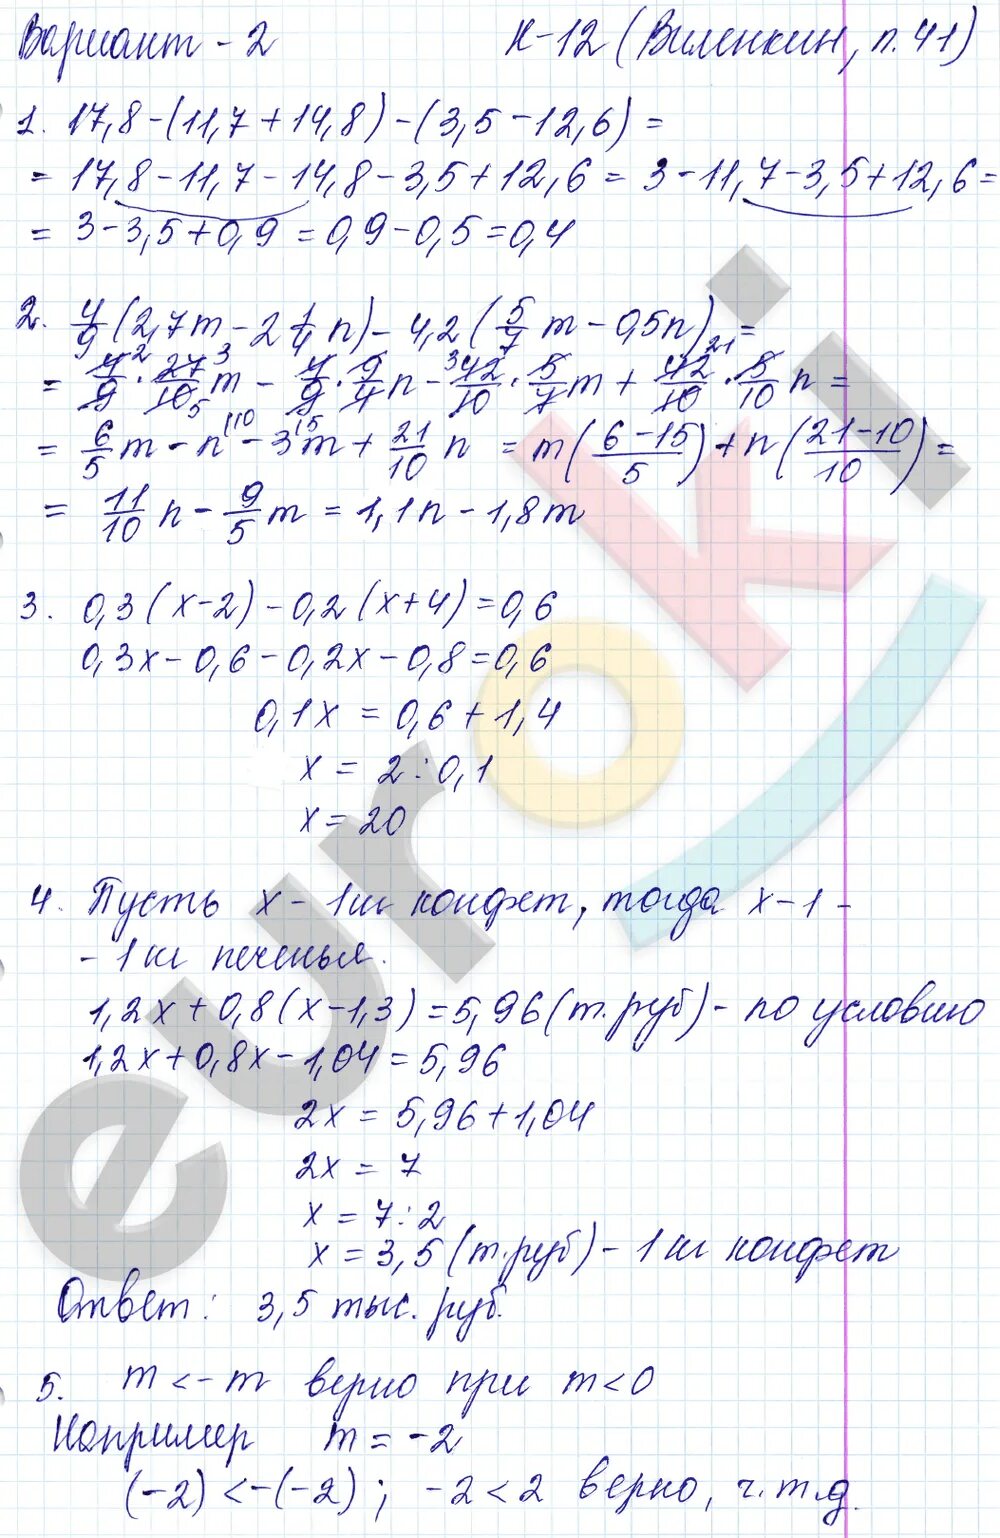 Вариант - 2 К-12 (Виленкин, п. 41)
1. 17,8-(11,7+14,8)-(3,5-12,6)=
= 17,8-11,7-14,8-3,5+12,6 = 3-11,7-3,5+12,6=
= 3-3,5+0,9=0,9-0,5=0,4
2. 4/9 (2,7m - 2 1/4 n) - 4,2 (5/7 m - 0,5n) =
= 4/9 · 27/10 m - 4/9 · 9/4 n - 42/10 · 5/7 m + 42/10 · 5/10 n =
= 6/5 m - n - 3m + 21/10 n = m((6-15)/5) + n((21-10)/10) =
= 11/10 n - 9/5 m = 1,1n - 1,8m
3. 0,3(x-2)-0,2(x+4)=0,6
0,3x-0,6-0,2x-0,8=0,6
0,1x = 0,6+1,4
x = 2:0,1
x = 20
4. Пусть x - 1кг конфет, тогда x-1 -
- 1кг печенья.
1,2x+0,8(x-1,3)=5,96(т.руб)- по условию
1,2x+0,8x-1,04=5,96
2x = 5,96+1,04
2x = 7
x = 7:2
x = 3,5(т.руб)- 1кг конфет
Ответ: 3,5 тыс. руб.
5. m<-m верно при m<0
Например m = -2
(-2)<-(-2); -2<2 верно, ч.т.д.
euroki